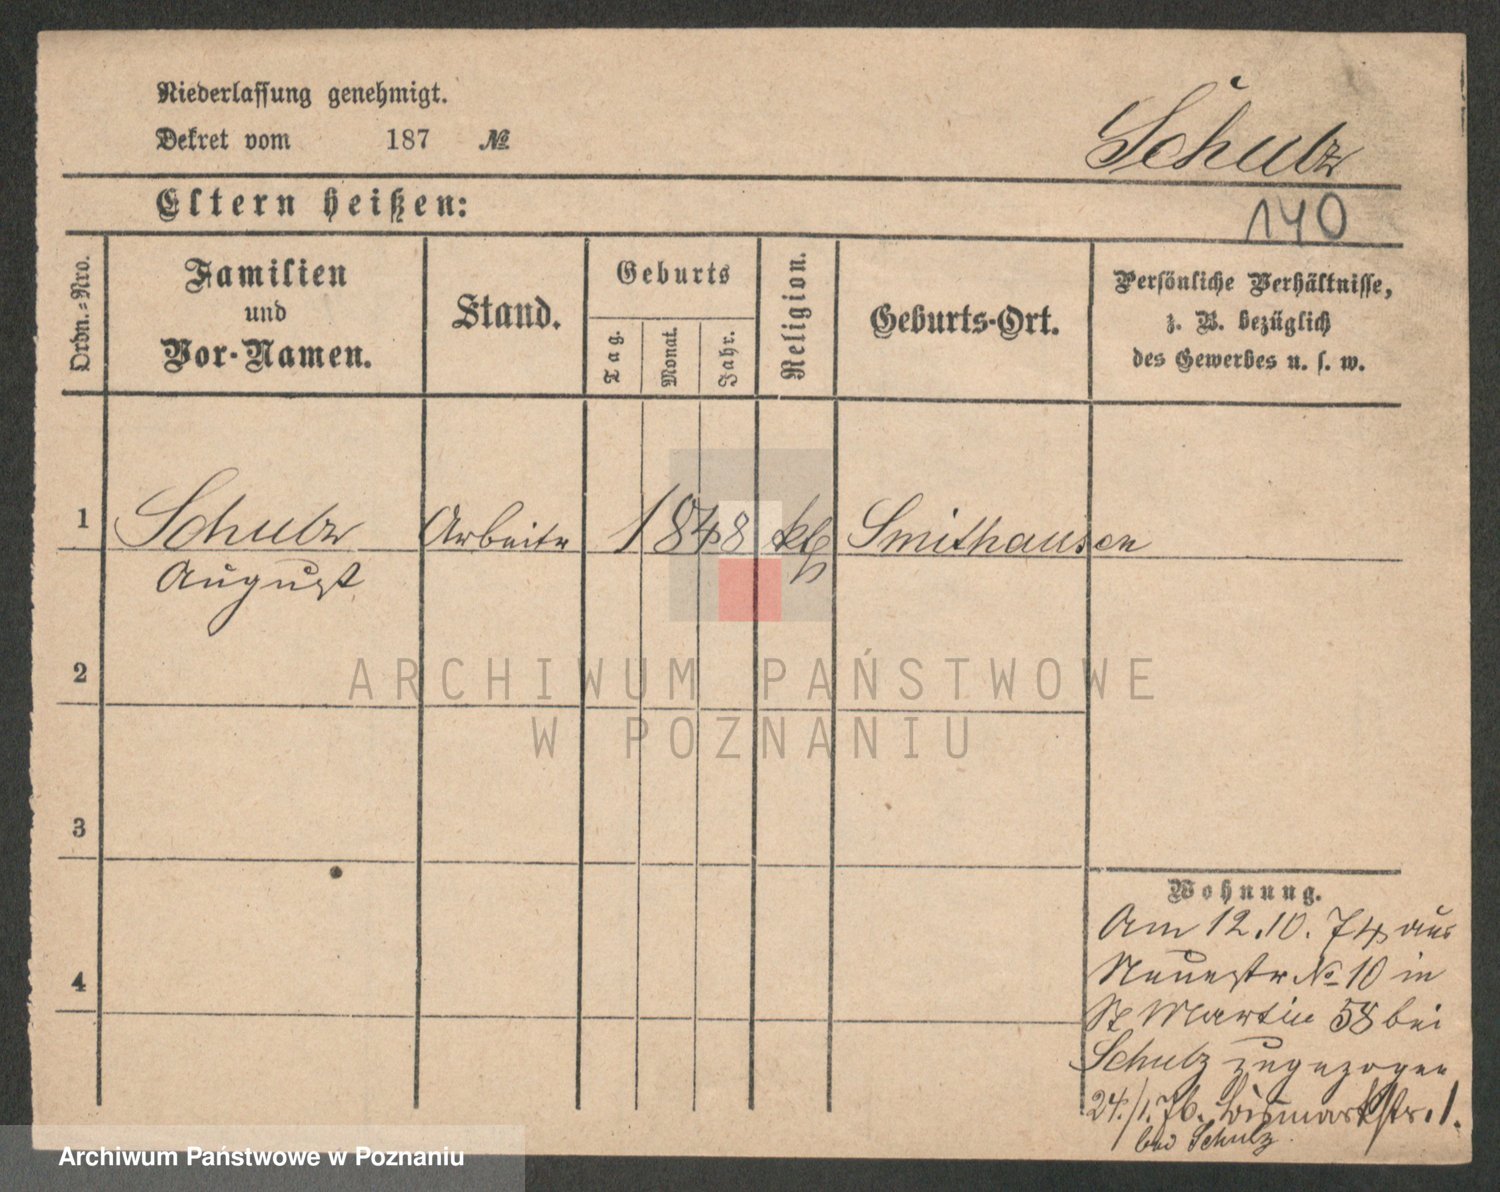 Niederlassung genehmigt.
Dekret vom 187 №
Schulz
Eltern heißen:
140
Ordn.-Nro.
Familien
und
Vor-Namen.
Stand.
Geburts
Tag.
Monat.
Jahr.
Religion.
Geburts-Ort.
Persönliche Verhältnisse,
z. B. bezüglich
des Gewerbes u. s. w.
1 Schulz Arbeiter 1848 kth Smithausen
August
2
ARCHIWUM PAŃSTWOWE
W POZNANIU
3
4
Wohnung.
Am 12.10.74 aus
Neuestr № 10 in
St Martin 58 bei
Schulz zugezogen
24./1.76. Bismarkstr. 1.
bei Schulz.
Archiwum Państwowe w Poznaniu